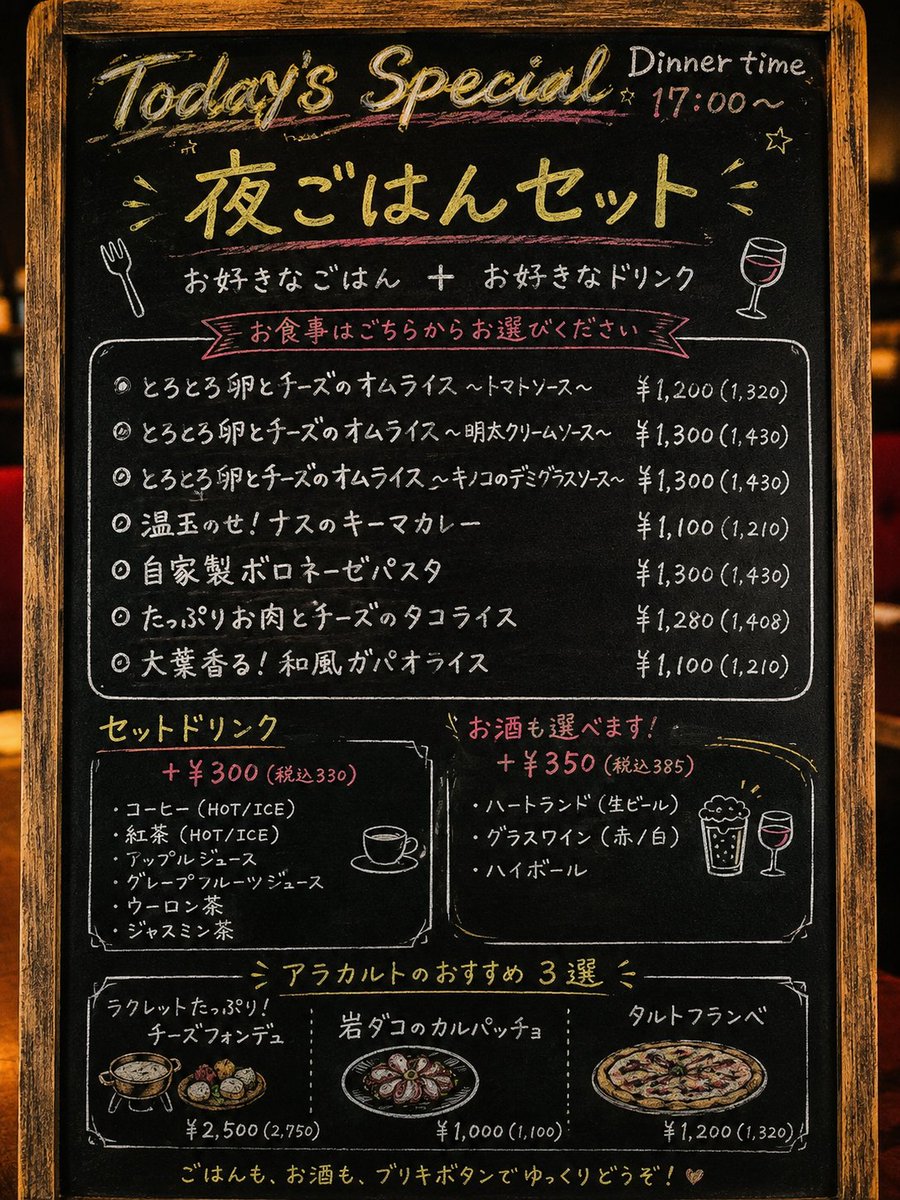 Today's Special
Dinner time
17:00～
夜ごはんセット
お好きなごはん ＋ お好きなドリンク
お食事はごちらからお選びください
◎ とろとろ卵とチーズのオムライス ～トマトソース～ ¥1,200(1,320)
◎ とろとろ卵とチーズのオムライス ～明太クリームソース～ ¥1,300(1,430)
◎ とろとろ卵とチーズのオムライス ～キノコのデミグラスソース～ ¥1,300(1,430)
◎ 温玉のせ！ナスのキーマカレー ¥1,100(1,210)
◎ 自家製ボロネーゼパスタ ¥1,300(1,430)
◎ たっぷりお肉とチーズのタコライス ¥1,280(1,408)
◎ 大葉香る！和風ガパオライス ¥1,100(1,210)
セットドリンク
＋¥300(税込330)
・コーヒー(HOT/ICE)
・紅茶(HOT/ICE)
・アップルジュース
・グレープフルーツジュース
・ウーロン茶
・ジャスミン茶
お酒も選べます！
＋¥350(税込385)
・ハートランド(生ビール)
・グラスワイン(赤/白)
・ハイボール
アラカルトのおすすめ 3選
ラクレットたっぷり！
チーズフォンデュ
¥2,500(2,750)
岩ダコのカルパッチョ
¥1,000(1,100)
タルトフランベ
¥1,200(1,320)
ごはんも、お酒も、ブリキボタンでゆっくりどうぞ！♡